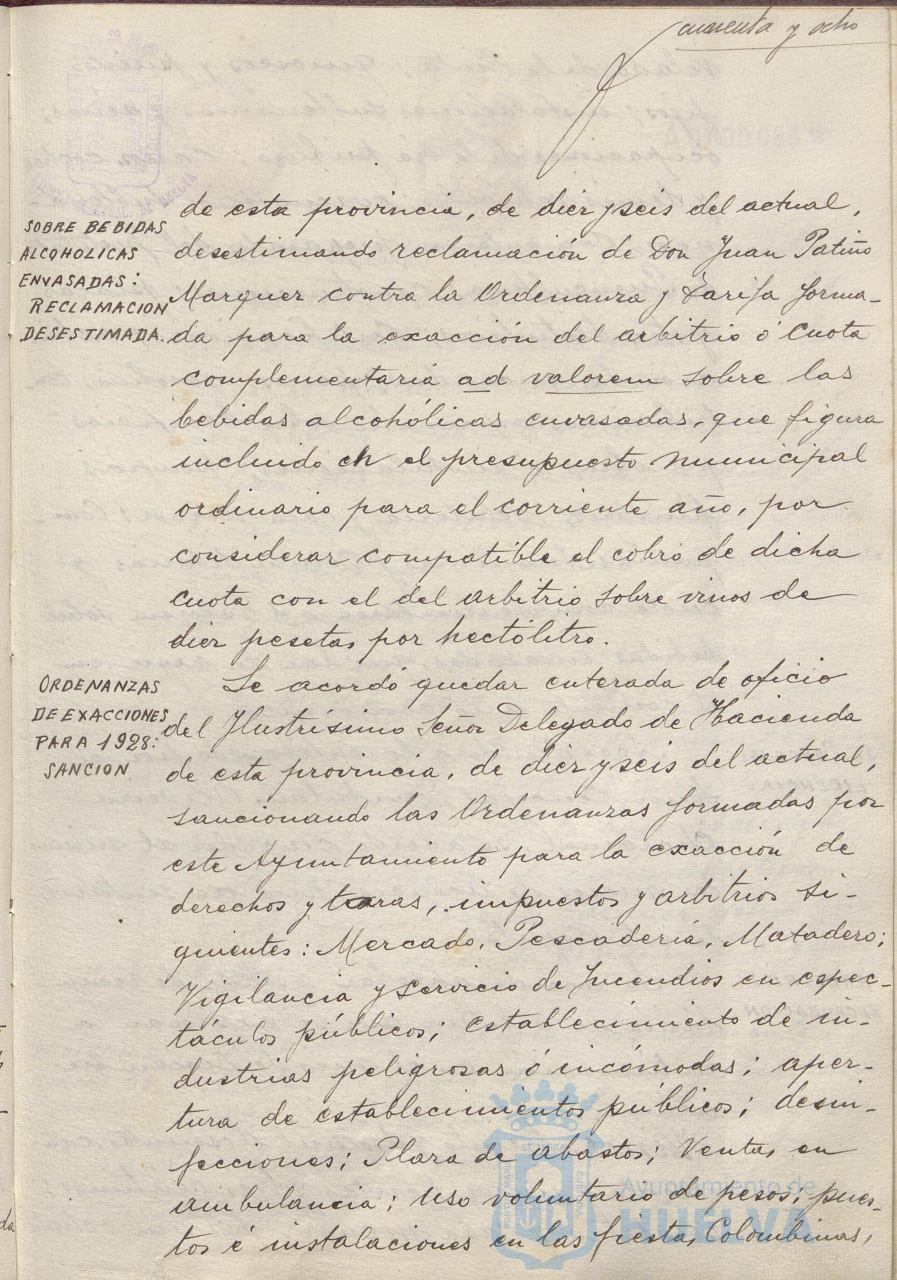 cuarenta y ocho
SOBRE BEBIDAS
ALCOHOLICAS
ENVASADAS:
RECLAMACION
DESESTIMADA.
de esta provincia, de diez y seis del actual,
desestimando reclamación de Don Juan Patiño
Marquez contra la Ordenanza y Tarifa forma-
da para la exacción del arbitrio ó Cuota
complementaria ad valorem sobre las
bebidas alcohólicas envasadas, que figura
incluido en el presupuesto municipal
ordinario para el corriente año, por
considerar compatible el cobro de dicha
cuota con el del arbitrio sobre vinos de
diez pesetas por hectólitro.
ORDENANZAS
DE EXACCIONES
PARA 1928:
SANCION
Se acordó quedar enterada de oficio
del Ilustrísimo Señor Delegado de Hacienda
de esta provincia, de diez y seis del actual,
sancionando las Ordenanzas formadas por
este Ayuntamiento para la exacción de
derechos y tazas, impuestos y arbitrios si-
guientes: Mercado, Pescadería, Matadero;
Vigilancia y servicio de Incendios en espec-
táculos públicos; establecimiento de in-
dustrias peligrosas ó incómodas; aper-
tura de establecimientos públicos; desin-
fecciones; Plaza de abastos; Ventas en
ambulancia; uso voluntario de pesos; pues-
tos é instalaciones en las fiestas Colombinas,
Ayuntamiento de
HUELVA